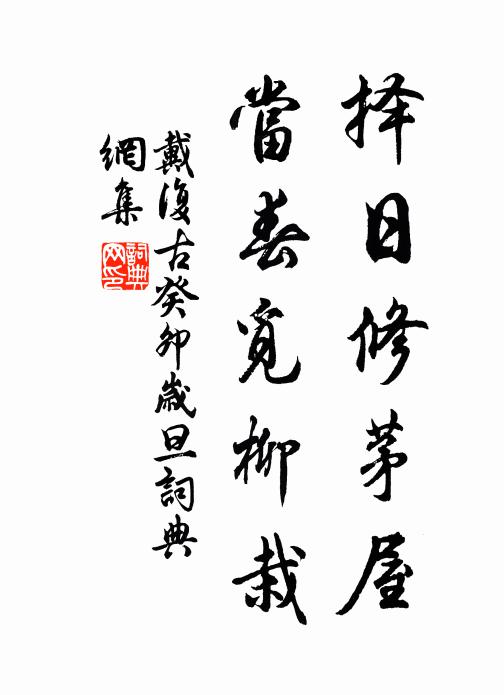 择日修茅屋
當春覓柳栽
戴復古癸卯歲旦詞典
網集
詞典
网印